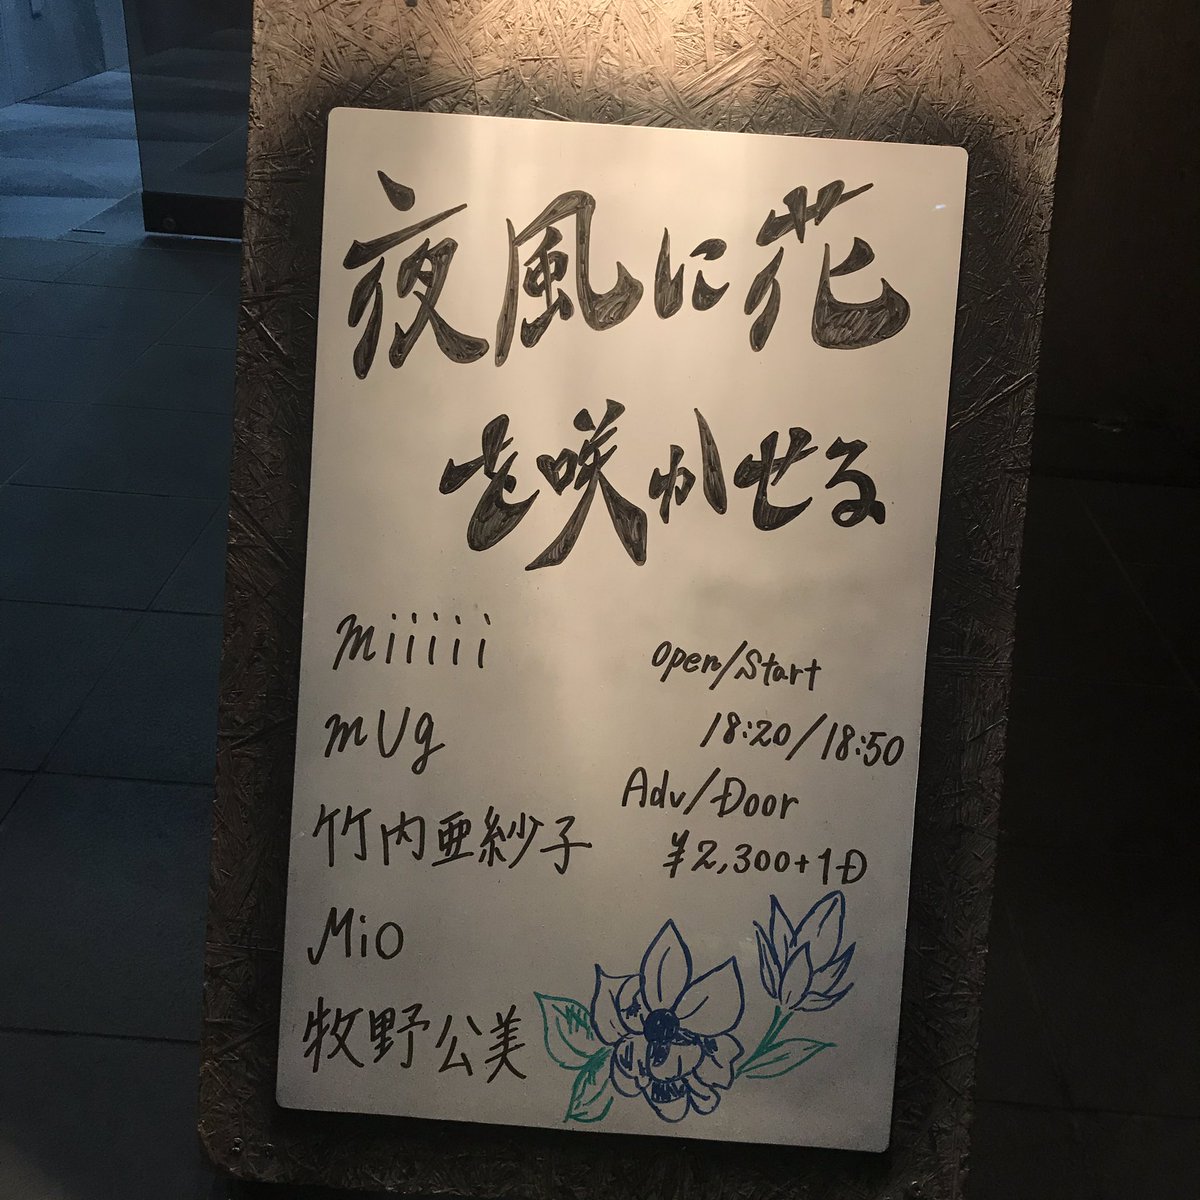 夜風に花
を咲かせる
miiiii
mUg
竹内亜紗子
Mio
牧野公美
Open/Start
18:20/18:50
Adv/Door
¥2,300+1D